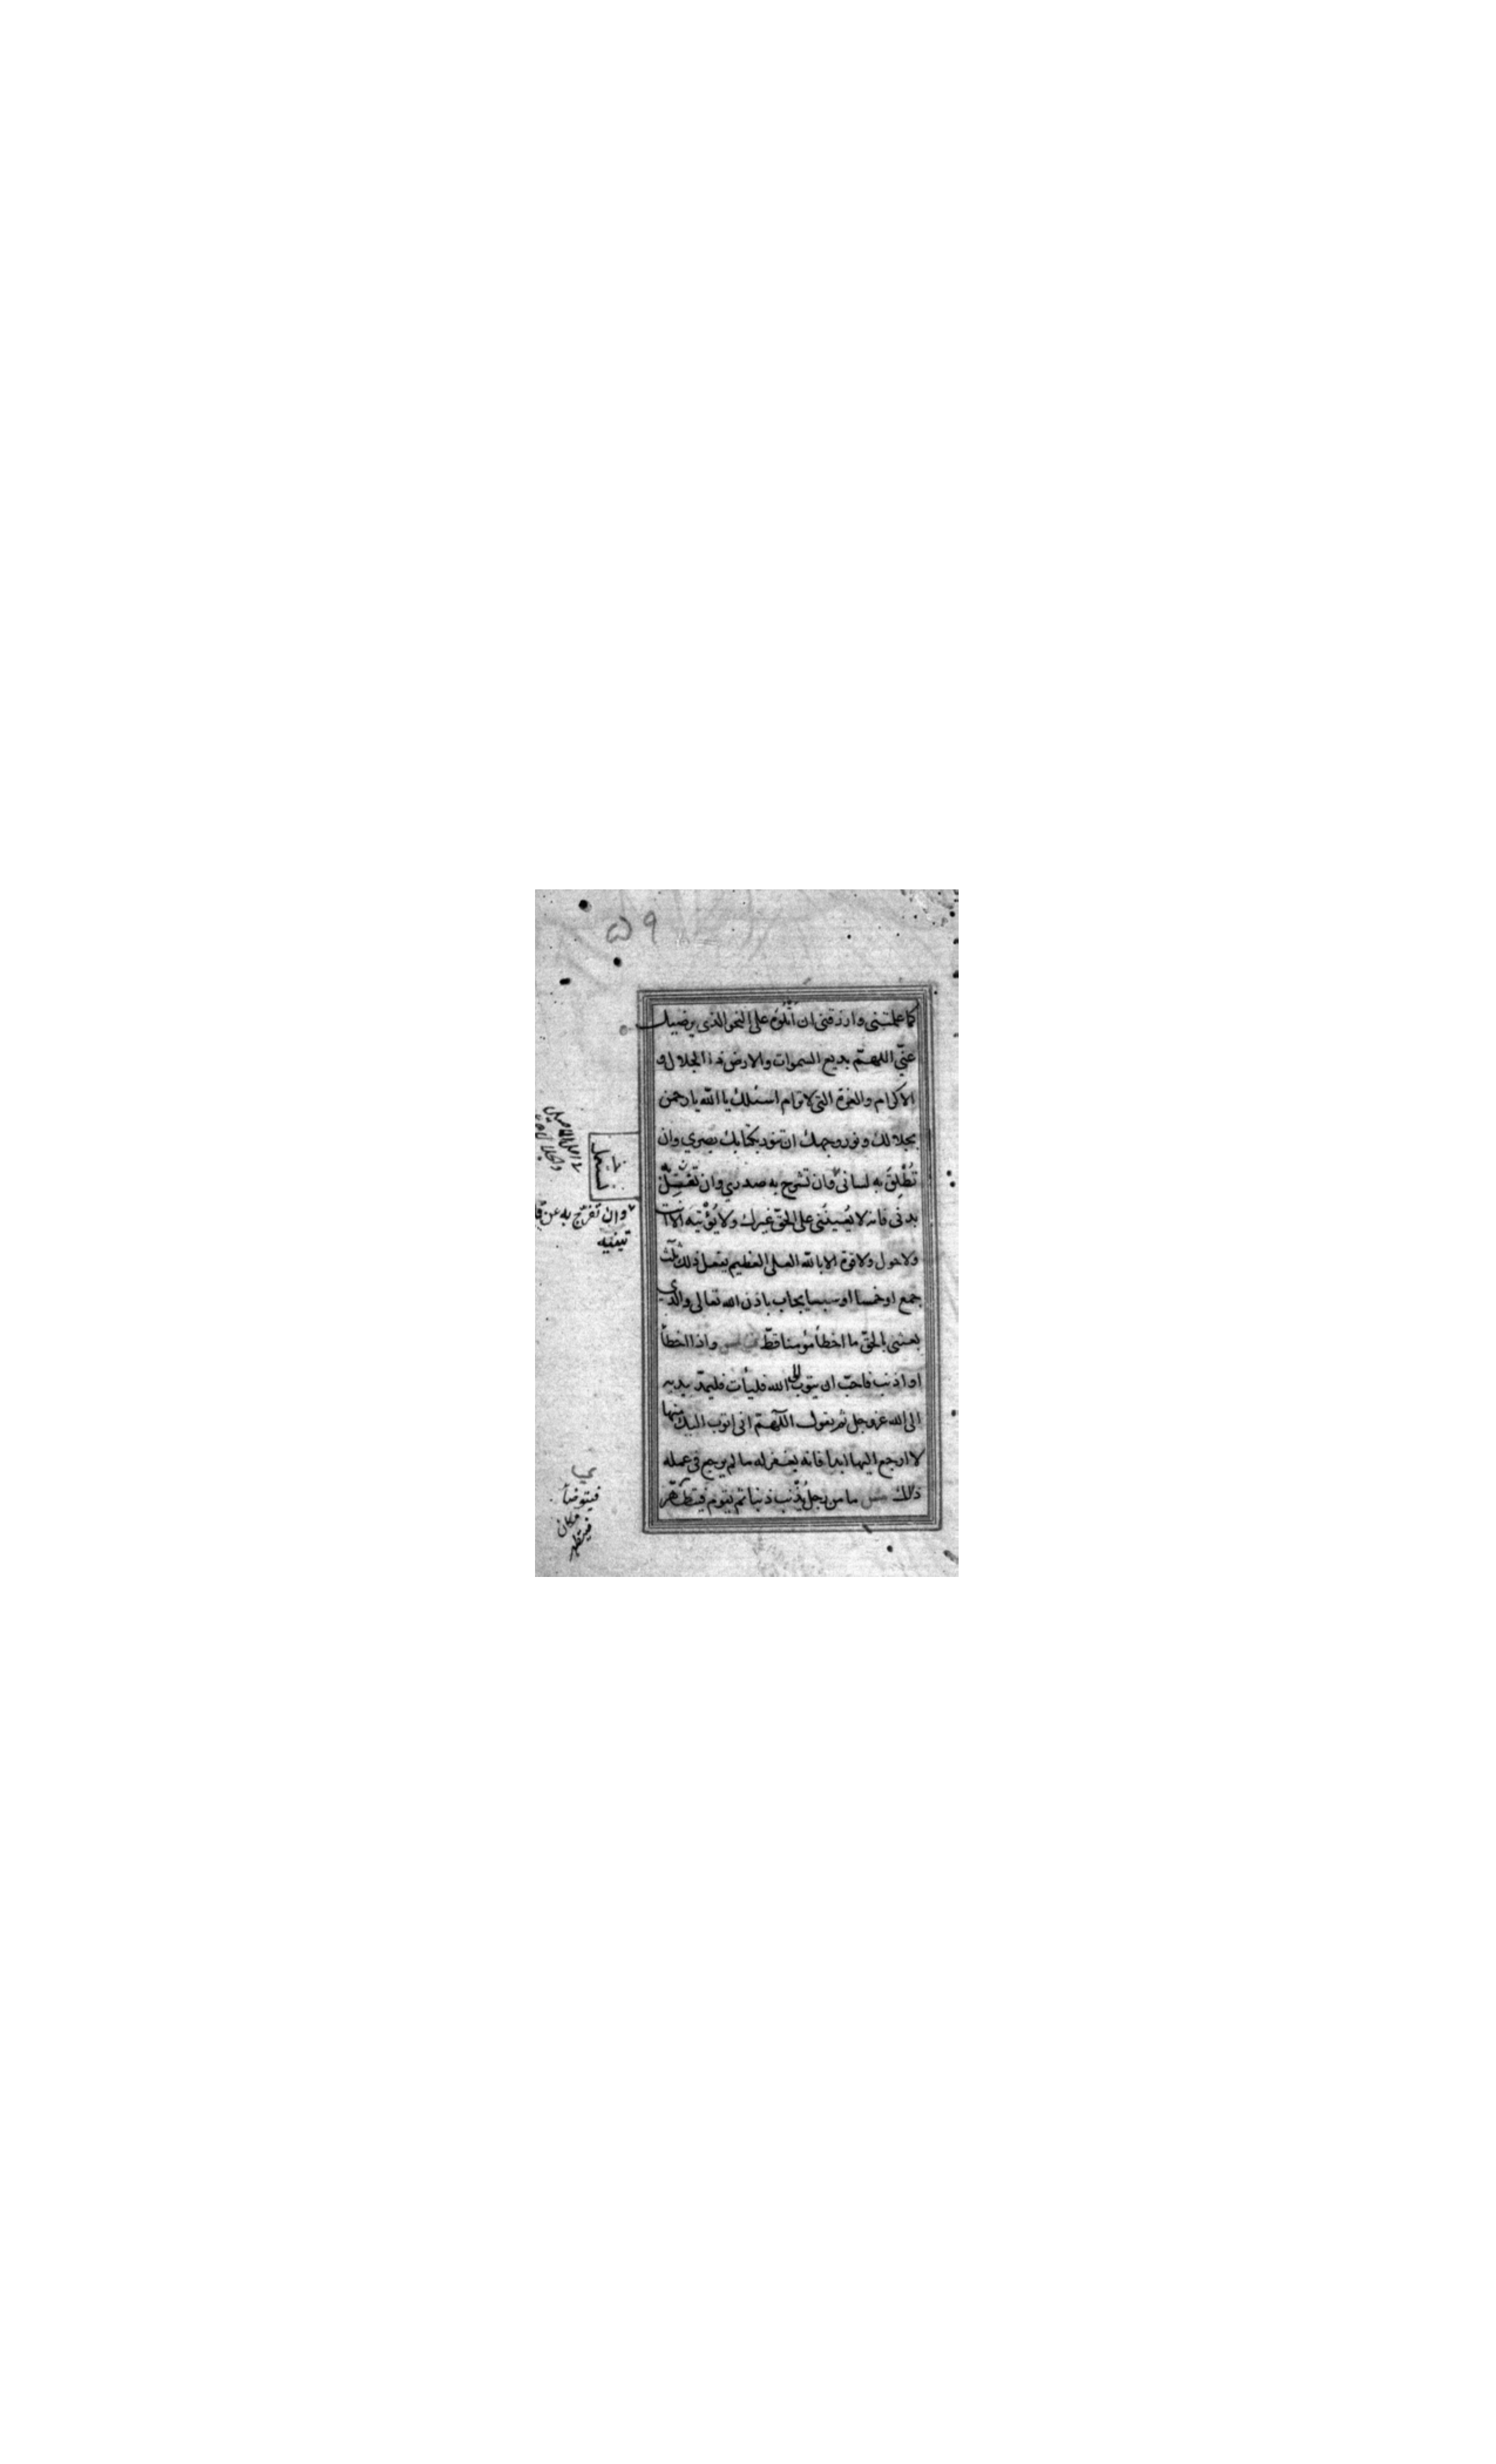 ۵۹
كما علمتنى وارزقنى ان أتلوه على النحو الذى يرضيك
عنّي اللهمّ بديع السموات والارض ذا الجلال و
الاكرام والعزة التى لا ترام اسئلك يا الله يا رحمن
بجلالك ونور وجهك ان تنور بكتابك بصري وان
تُطْلِقَ به لسانى وان تشرح به صدري وان
بدنى فانه لا يُعينُنى على الحقّ غيرك ولا يُؤْتيه الا انت
ولا حول ولا قوة الا بالله العلى العظيم يفعل ذلك ثلث
جمع او خمسا او سبعا يجاب باذن الله تعالى والذي
بعثنى بالحقّ ما اخطأ مؤمنا قطّ واذا اخطأ
او اذنب فاحبّ ان يتوب الى الله فليأت فليمدّ يديه
الى الله عزوجل ثم يقول اللهمّ انى اتوب اليك منها
لا ارجع اليها ابدا فانه يغفر له ما لم يرجع فى عمله
ذلك ما من رجل يُذنب ذنبا ثم يقوم فيتطهّر
وان تفرّج به عن
فيتوضأ
مكان
فيتطهر